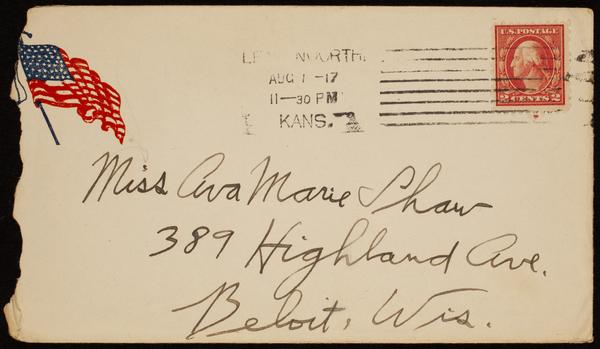 U.S. POSTAGE
2 CENTS 2
AUG 1 -17
11-30 PM
KANS.
Miss Ava Marie Shaw
389 Highland Ave.
Beloit, Wis.